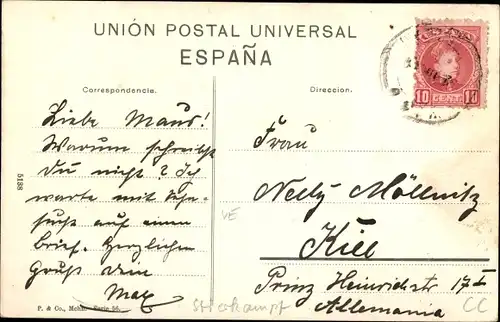 UNIÓN POSTAL UNIVERSAL
ESPAÑA
Correspondencia.
Direccion.
10 CENT. 10
Liebe Maus!
Warum schreibst
du nicht? Ich
warte mit Sehn-
sucht auf einen
Brief. Herzlichen
Gruß Dein
Max
Frau
Nelly Möllnitz
Kiel
Prinz Heinrichstr 17 I
Allemania
5138
P. & Co., Serie 56.
VE
CC